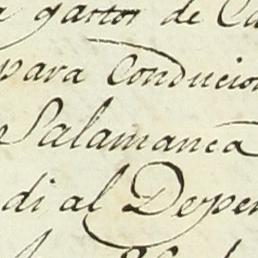 gastos de Ca
para Conducion
Salamanca
di al Depen